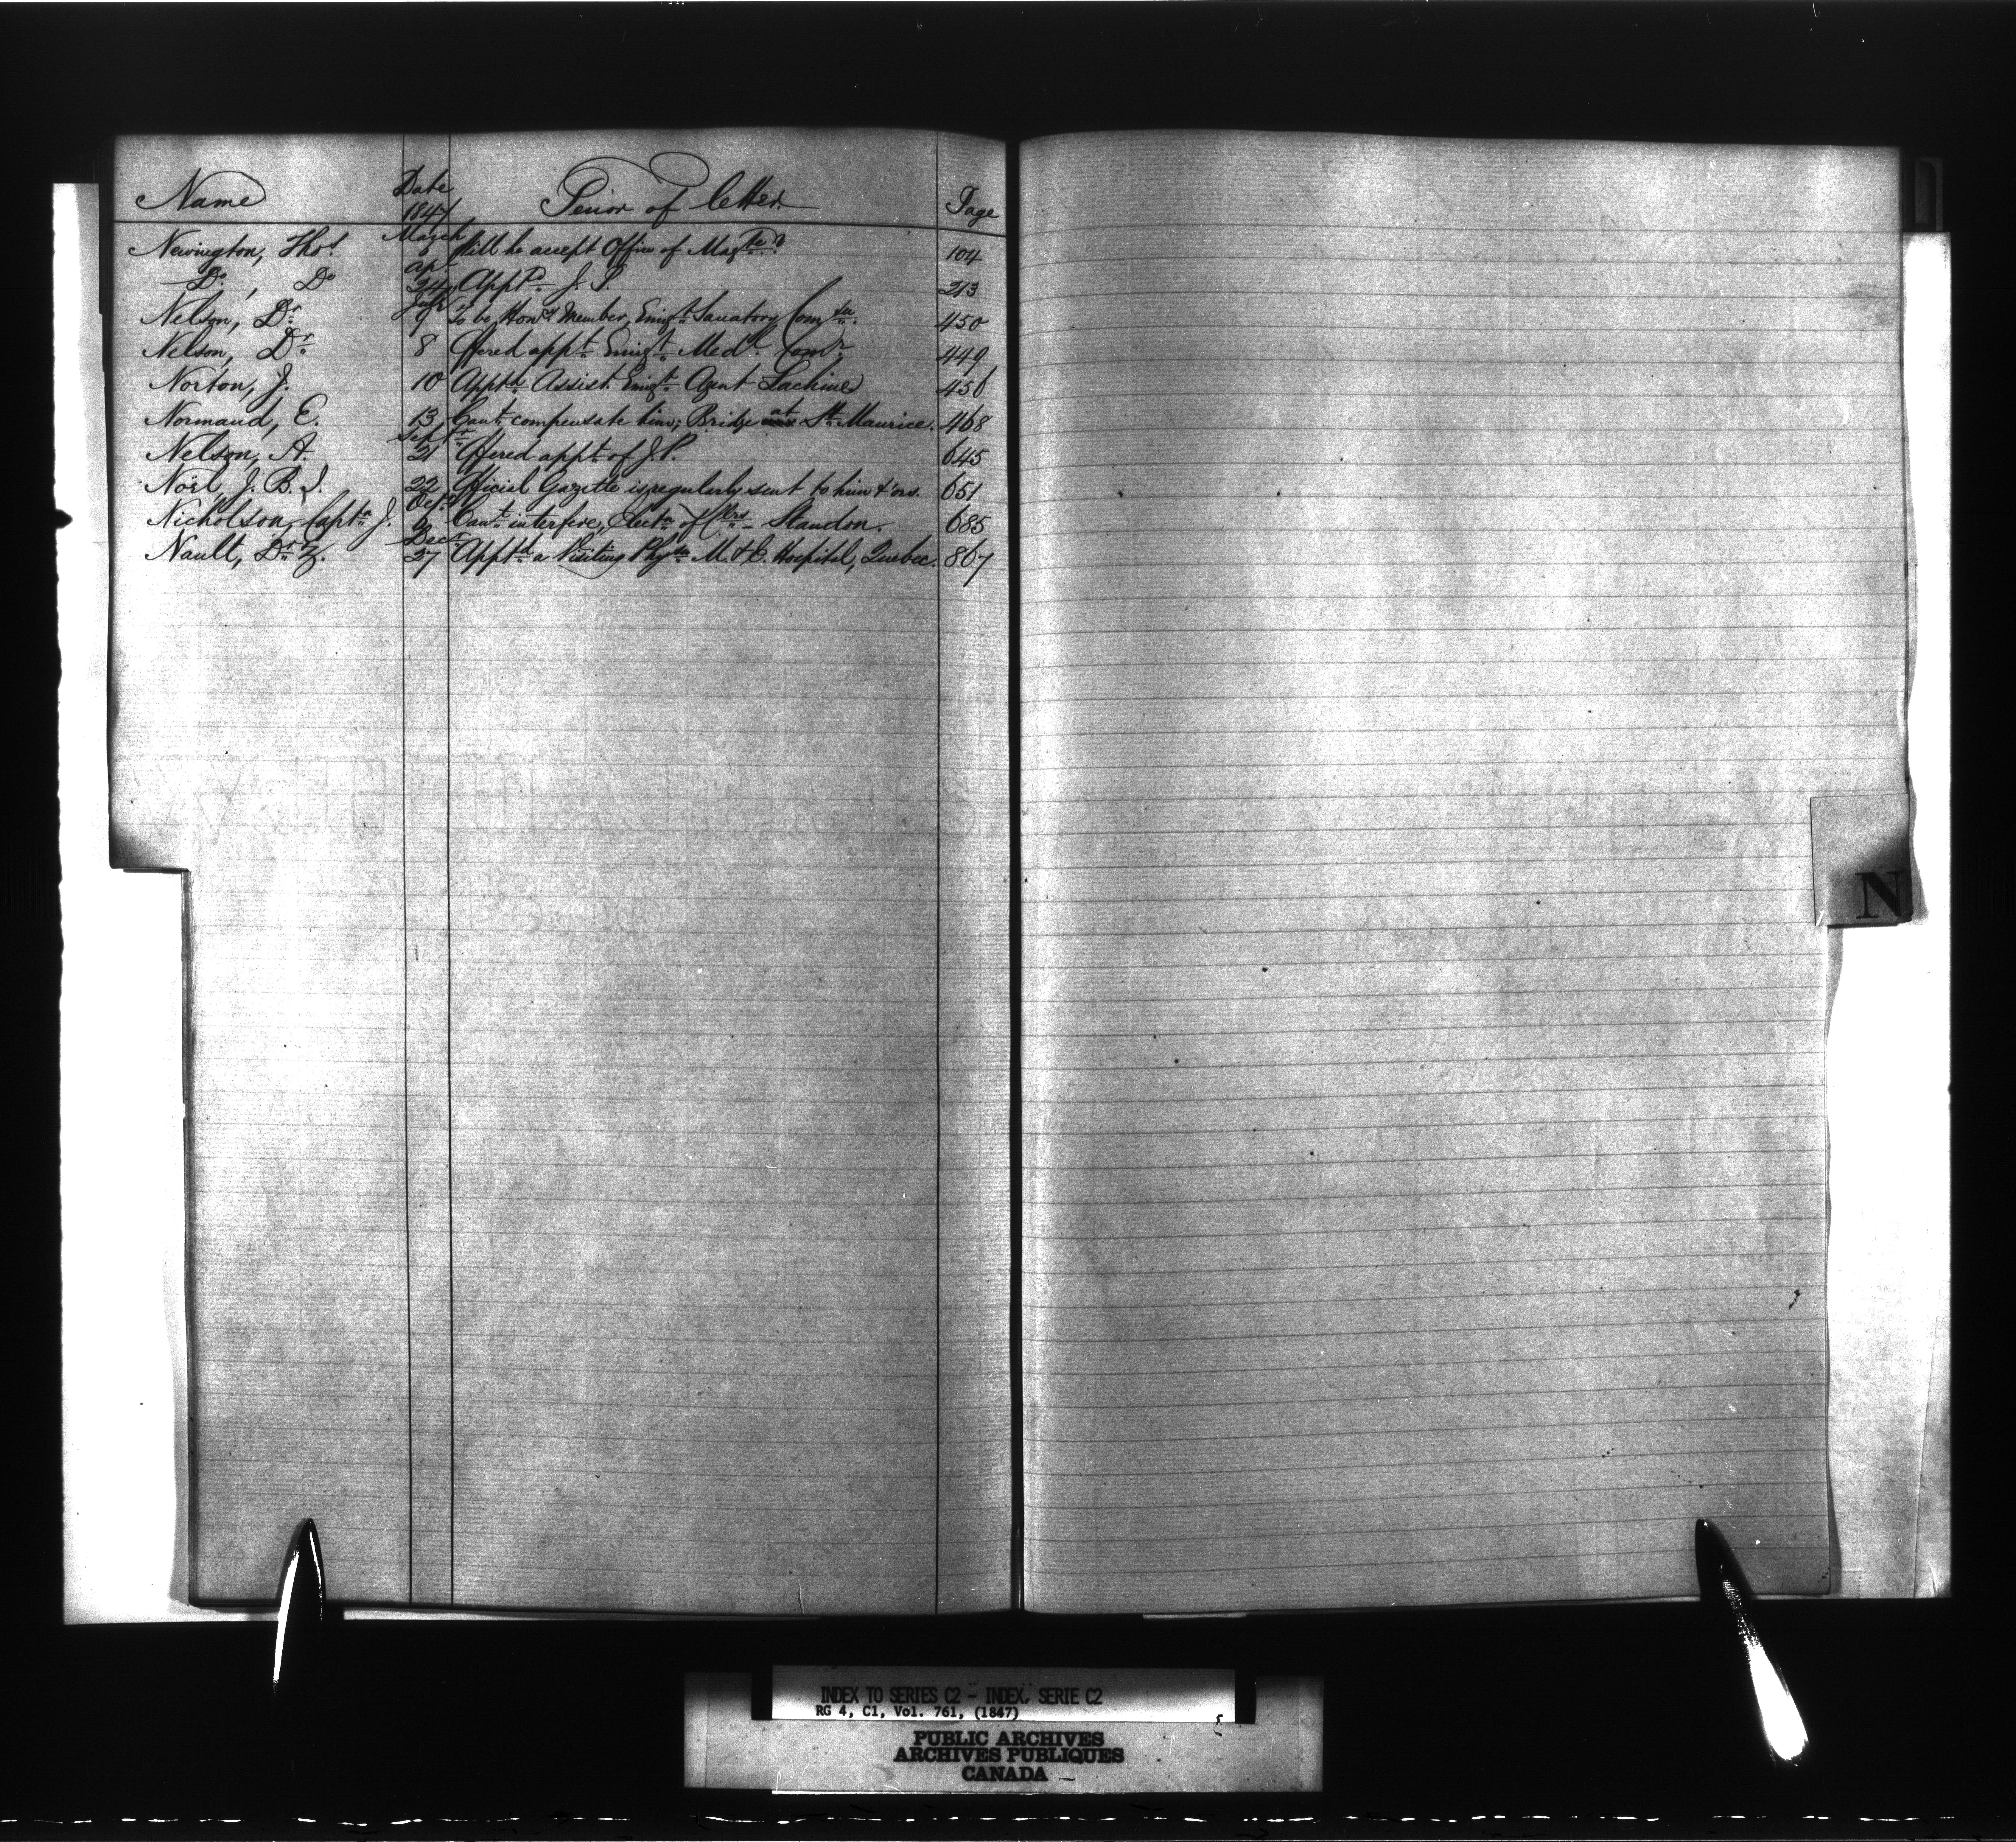 Name Date Tenor of letter Page
1847
Newington, Thos. March 6 Will he accept Office of Magte? 104
Do. , Do Apl. 24 Apptd J. P. 213
Nelson, Dr. July 9 To be Hony. Member, Emigt. Sanatory Comtee. 450
Nelson, Dr. 8 Offered appt. Emigt. Medl. Comr. 449
Norton, J. 10 Apptd. Assist. Emigt. Agent Lachine 456
Normand, E. 13 Cant. compensate him; Bridge at St. Maurice. 468
Nelson, A. Septr. 21 Offered appt. of J.P. 645
Noël, J. B. I. 22 Official Gazette is regularly sent to him & ors. 651
Nicholson, Captn. J. Octr. 9 Cant. interfere, Electn. of Clrs. - Standon. 685
Nault, Dr. Z. Decr. 27 Apptd. a Visiting Physn. M. & E. Hospital, Quebec. 867
N
INDEX TO SERIES C2 - INDEX, SERIE C2
RG 4, C1, Vol. 761, (1847)
PUBLIC ARCHIVES
ARCHIVES PUBLIQUES
CANADA